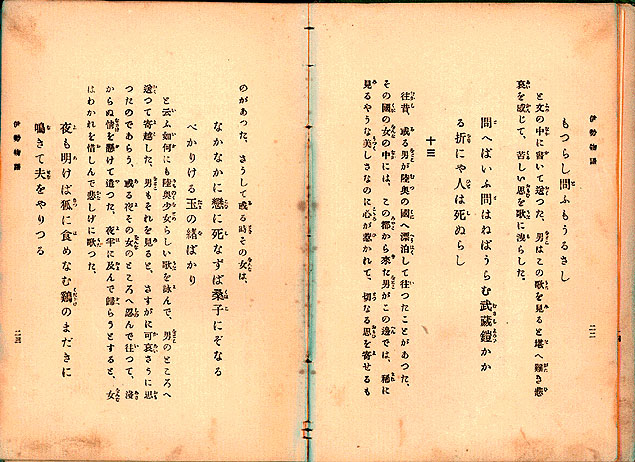 伊勢物語
二二
もつらし問ふもうるさし
と文の中に書いて送つた。男はこの歌を見ると堪へ難き悲
哀を感じて、苦しい思を歌に洩らした。
問へばいふ問はねばうらむ武蔵鐙かか
る折にや人は死ぬらし
十三
往昔、或る男が陸奥の國へ漂泊して往つたことがあつた、
その國の女の中には、この都から來た男がこの邊では、稀に
見るやうな美しさなのに心が惹かれて、切なる思を寄せるも
のがあつた、さうして或る時その女は、
なかなかに戀に死なずば桑子にぞなる
べかりける玉の緒ばかり
と云ふ如何にも陸奥少女らしい歌を詠んで、男のところへ
送つて寄越した。男もそれを見ると、さすがに可哀さうに思
つたのであらう、或る夜その女のところへ忍んで往つて、淺
からぬ情を懸けて遣つた。夜半に及んで歸らうとすると、女
はわかれを惜しんで悲しげに歌つた。
夜も明けば狐に食めなむ鶏のまだきに
鳴きて夫をやりつる
伊勢物語
二三